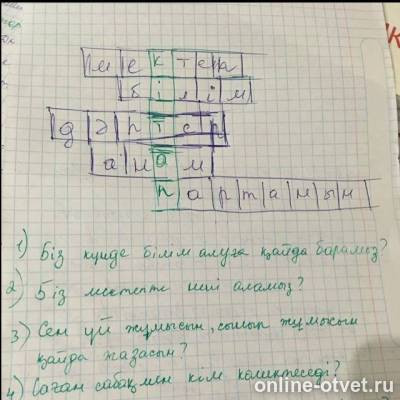 мектепа
білім
дәптер
анам
партанын
1) Біз күнде білім алуға қайда барамыз?
2) Біз мектепте нені аламыз?
3) Сен үй жұмысын, сынып жұмысын
қайда жазасын?
4) Саған сабақпен кім көмектеседі?
online-otvet.ru